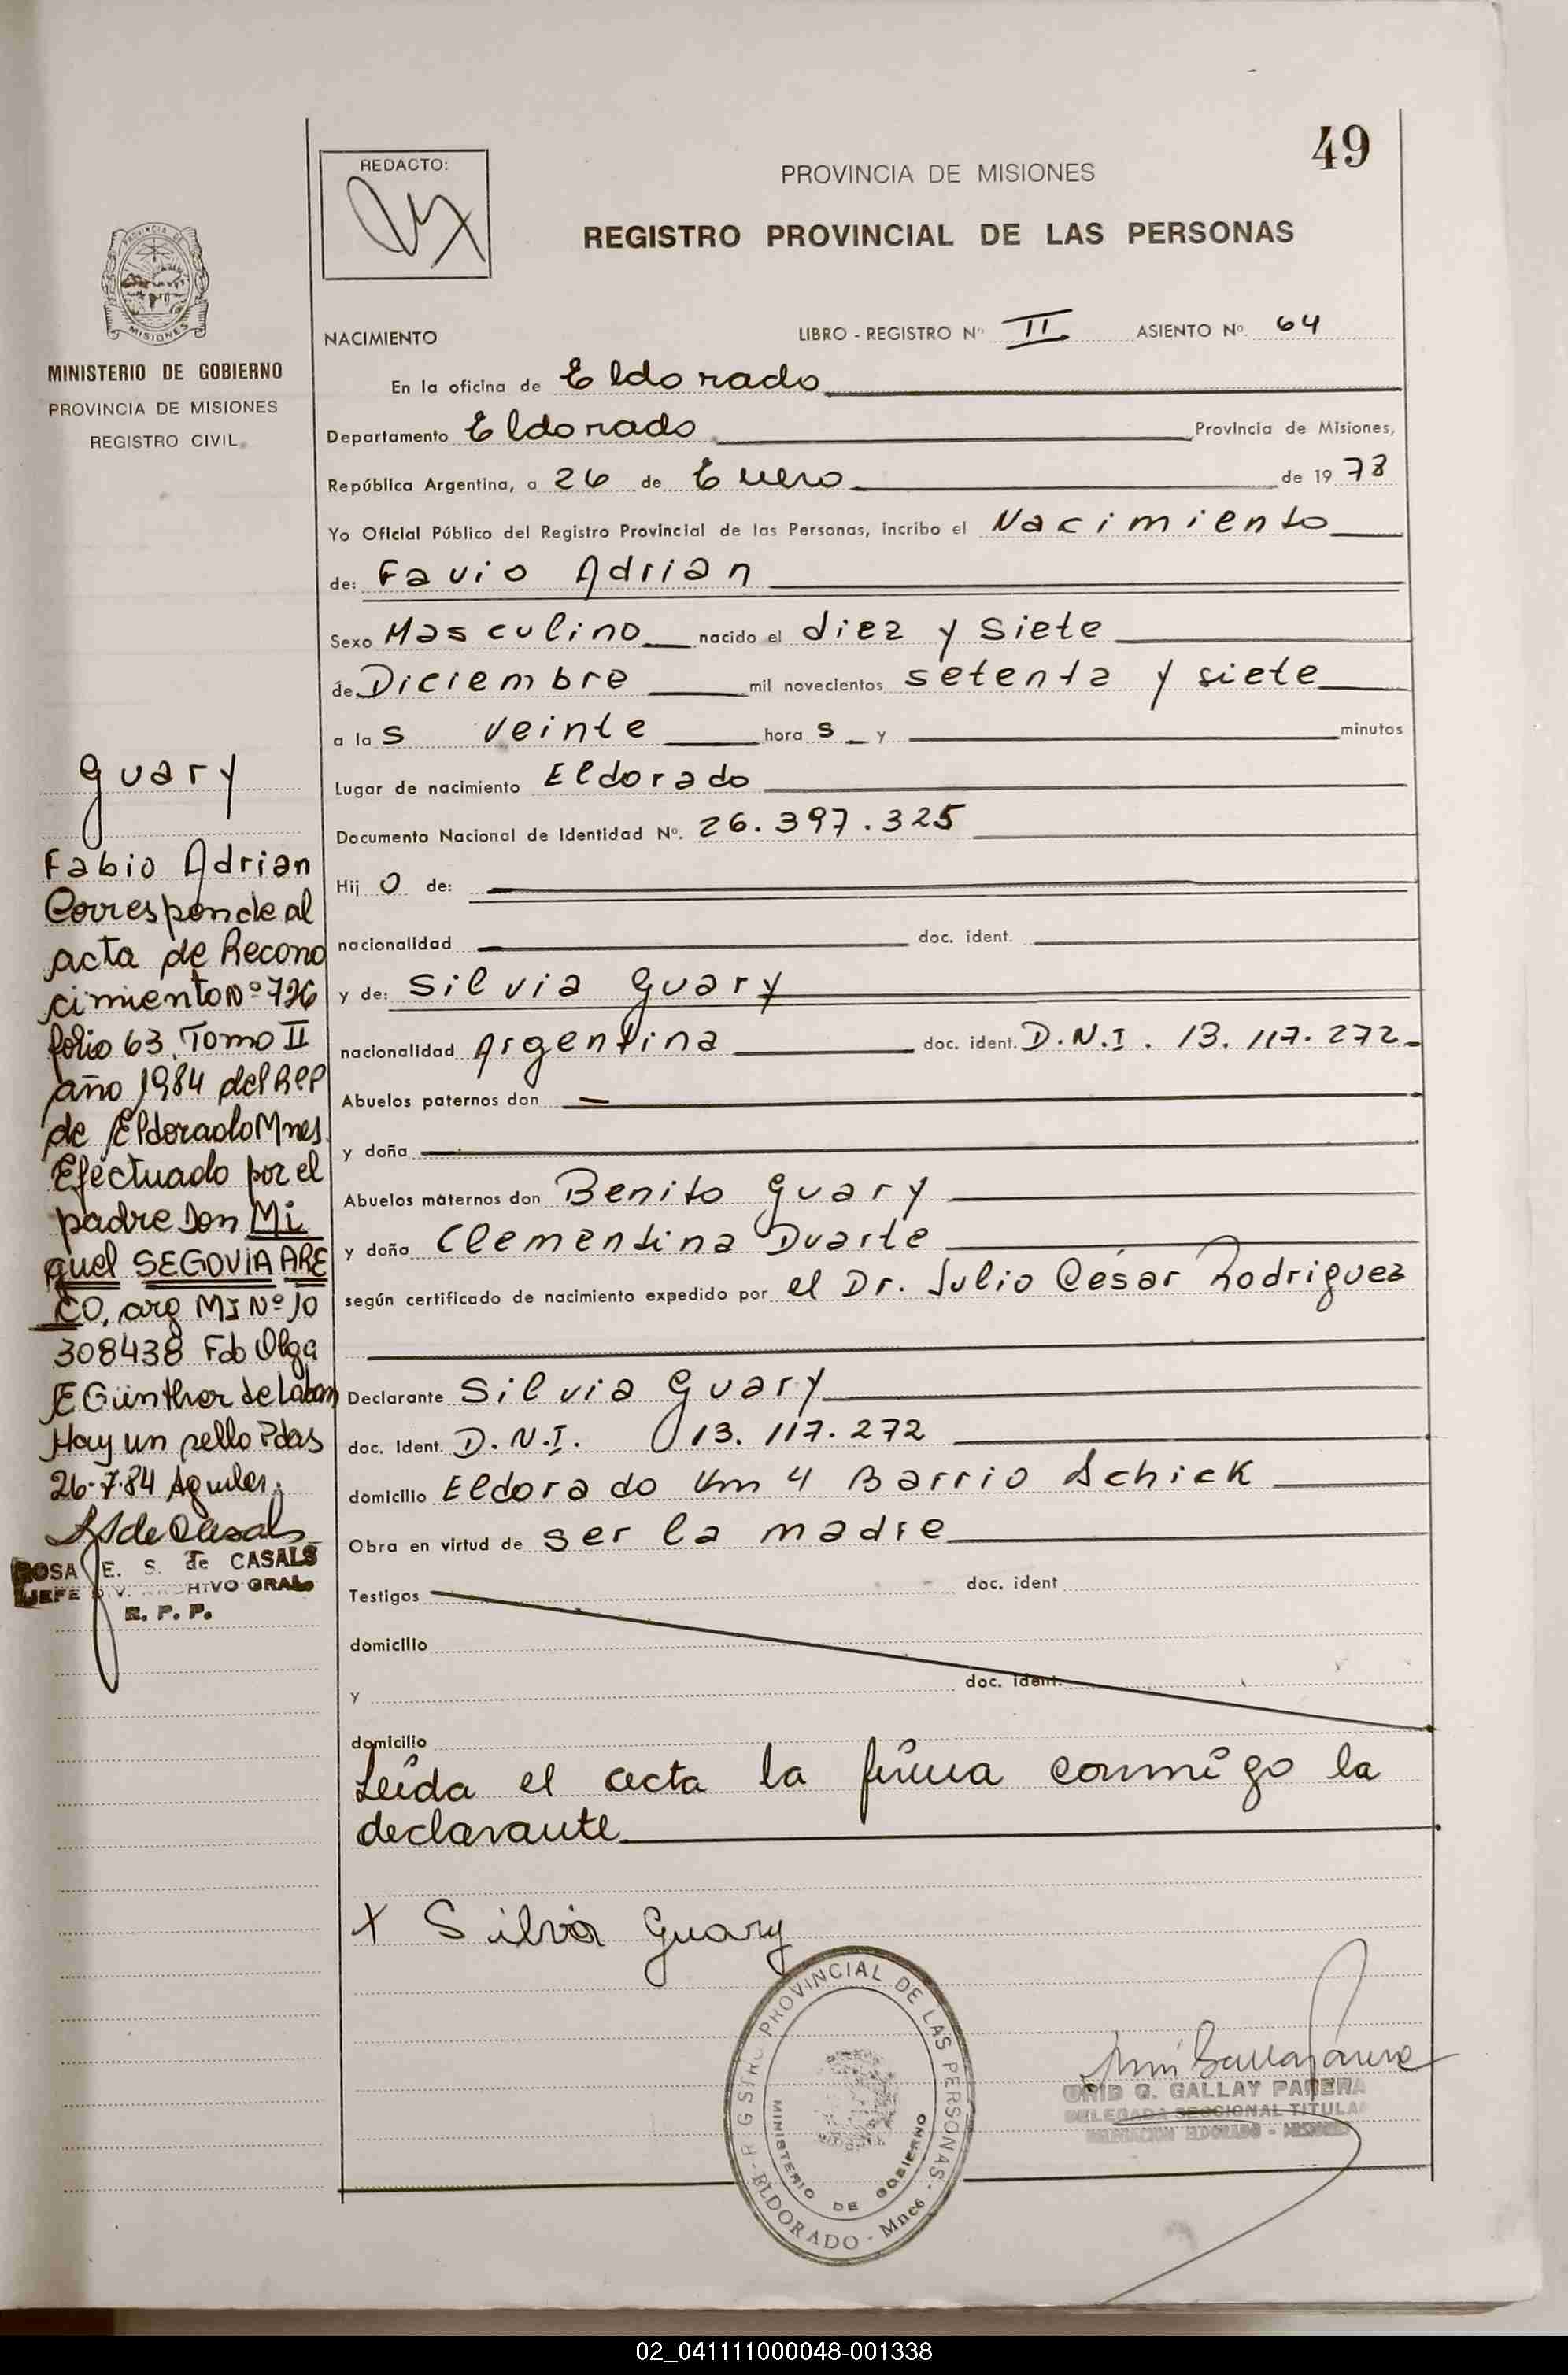 49
REDACTO:
PROVINCIA DE MISIONES
REGISTRO PROVINCIAL DE LAS PERSONAS
PROVINCIA DE
MISIONES
MINISTERIO DE GOBIERNO
PROVINCIA DE MISIONES
REGISTRO CIVIL
NACIMIENTO LIBRO - REGISTRO Nº II ASIENTO Nº. 64
En la oficina de Eldorado
Departamento Eldorado Provincia de Misiones,
República Argentina, a 26 de Enero de 19 78
Yo Oficial Público del Registro Provincial de las Personas, incribo el Nacimiento
de: Favio Adrian
Sexo Masculino nacido el diez y siete
de Diciembre mil novecientos setenta y siete
a la s veinte hora s y minutos
Lugar de nacimiento Eldorado
Documento Nacional de Identidad Nº. 26.397.325
Hij o de:
nacionalidad doc. ident.
y de: Silvia Guary
nacionalidad Argentina doc. ident. D.N.I. 13.117.272
Abuelos paternos don
y doña
Abuelos maternos don Benito Guary
y doña Clementina Duarte
según certificado de nacimiento expedido por el Dr. Julio César Rodriguez
Declarante Silvia Guary
doc. Ident. D.N.I. 13.117.272
domicilio Eldorado Km 4 Barrio Schick
Obra en virtud de ser la madre
Testigos doc. ident
domicilio
y doc. ident.
domicilio
Leída el acta la firma conmigo la
declarante
x Silvia Guary
Guary
Fabio Adrian
Corresponde al
acta de Recono
cimiento Nº 726
folio 63. Tomo II
año 1984 del RPP
de Eldorado Mnes.
Efectuado por el
padre Don Mi
guel SEGOVIA ARE
CO, arg MI Nº 10
308438 Fdo Olga
E Günther de
Hay un sello Pdas
26-7-84
ROSA E. S. de CASALS
JEFE DIV. ARCHIVO GRAL.
R. P. P.
REGISTRO PROVINCIAL DE LAS PERSONAS
MINISTERIO DE GOBIERNO
ELDORADO - Mnes
G. GALLAY PARERA
DELEGADA SECCIONAL TITULAR
DELEGACION ELDORADO - MISIONES
02_041111000048-001338